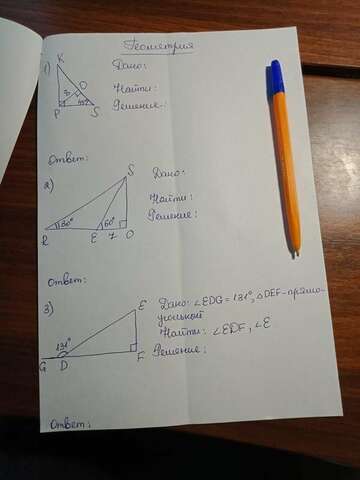 Геометрия
1)
K
Дано:
O
8
45°
P
S
Найти:
Решение:
Ответ:
2)
S
Дано:
Найти:
Решение:
30°
60°
R
E
7
O
Ответ:
3)
E
Дано: ∠EDG = 131°, △DEF - прямо-
угольной
Найти: ∠EDF, ∠E
Решение:
131°
G
D
F
Ответ: